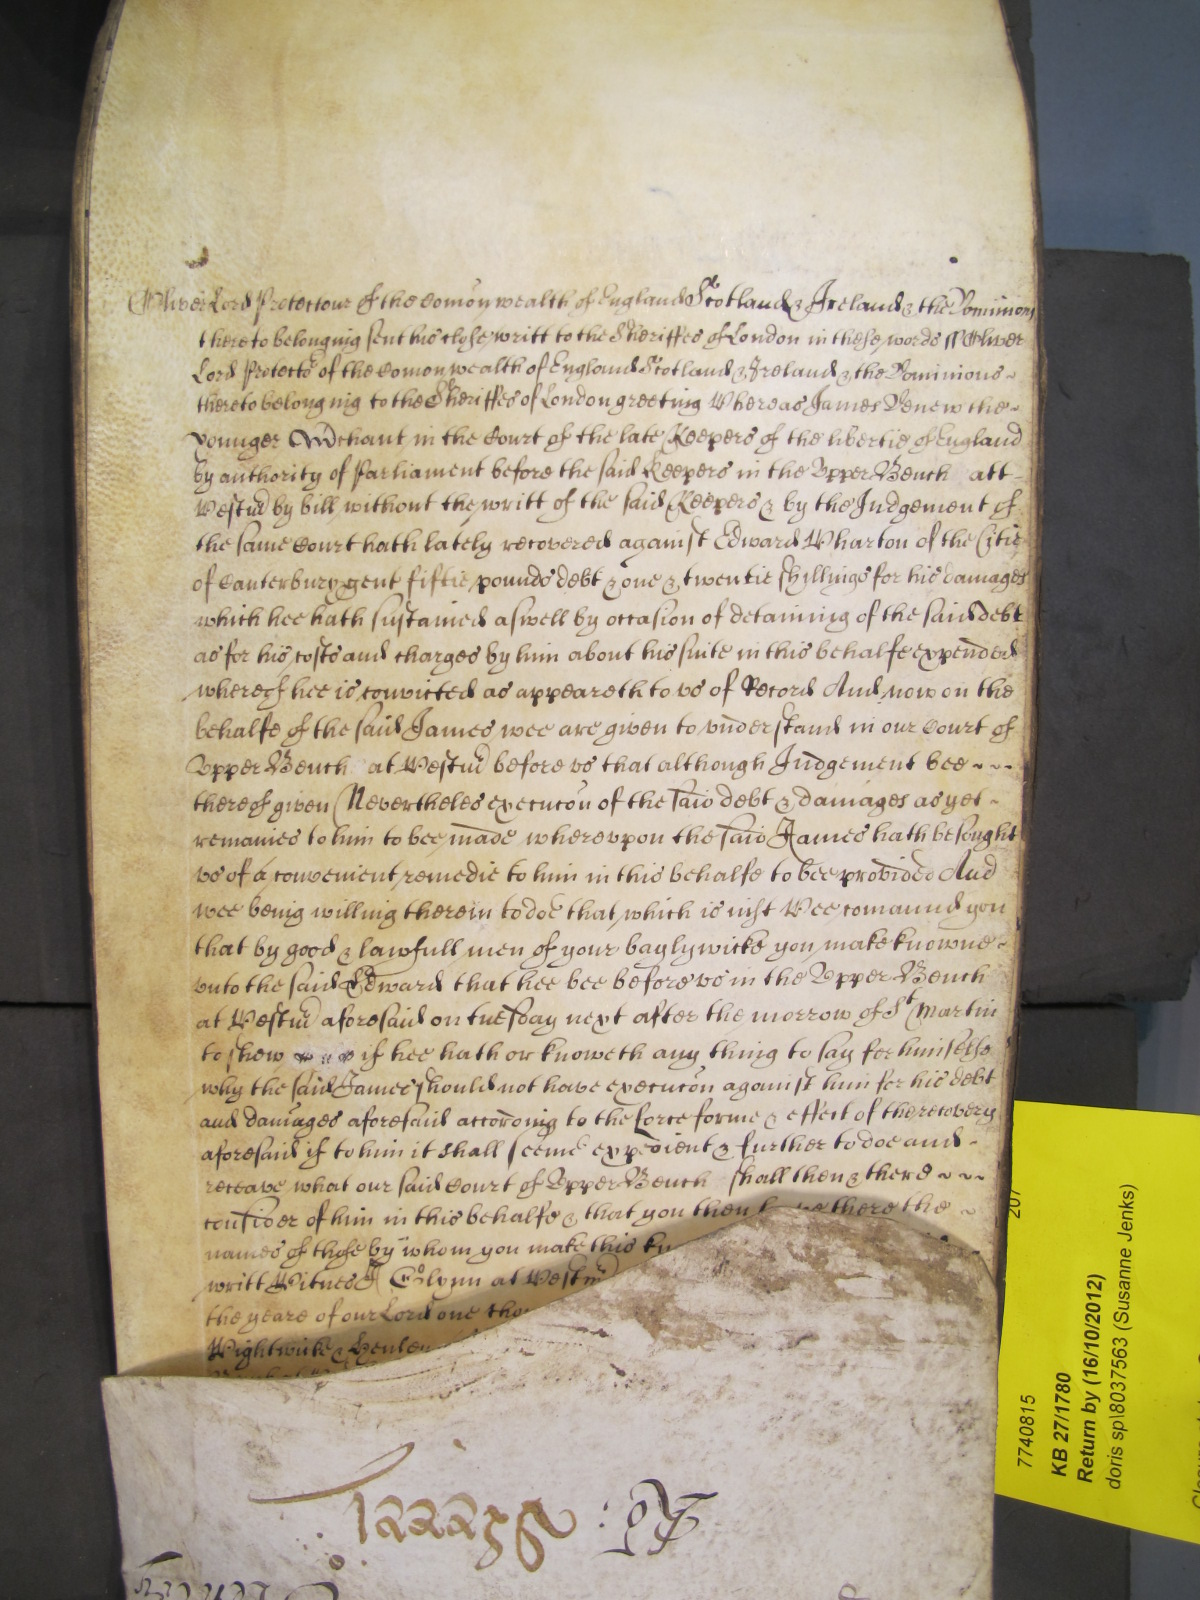 Oliver Lord Protectour of the Comon wealth of England Scotland & Ireland & the Dominions
thereto belonging sent his close writt to the Sheriffes of London in these words ss Oliver
Lord Protector of the Comon wealth of England Scotland & Ireland & the Dominions ~
thereto belonging to the Sheriffes of London greeting Whereas James Denew the ~
younger Mrchant in the Court of the late Keepers of the libertie of England
by authority of Parliament before the said Keepers in the Vpper Bench att
Westm by bill without the writt of the said Keepers & by the Judgement of
the same Court hath lately recovered against Edward Wharton of the Citie
of Canterbury gent fiftie pounds debt & one & twentie shyllings for his damages
which hee hath sustained aswell by occasion of detaining of the said debt
as for his costs and charges by him about his suite in this behalfe expended
whereof hee is convicted as appeareth to vs of Record And now on the
behalfe of the said James wee are given to vnderstand in our Court of
Vpper Bench at Westm before vs that although Judgement bee ~ ~ ~
thereof given Nevertheles execucon of the said debt & damages as yet ~
remaines to him to bee made wherevpon the said James hath besought
vs of a convenient remedie to him in this behalfe to bee provided And
wee being willing therein to doe that which is iust Wee comaund you
that by good & lawfull men of your baylywicke you make knowne ~
vnto the said Edward that hee bee before vs in the Vpper Bench
at Westm aforesaid on tuesday next after the morrow of St Martin
to shew if hee hath or knoweth any thing to say for himselfe
why the said James should not have execucon against him for his debt
and damages aforesaid according to the force forme & effect of the recovery
aforesaid if to him it shall seeme expedient & further to doe and ~
receave what our said Court of Vpper Bench shall then & there ~ ~ ~
consider of him in this behalfe & that you then there the ~
names of those by whom you make this
writt Witnes J Glynn at Westm
the yeare of our Lord one
Wightwick & Henley
7740815
KB 27/1780
Return by (16/10/2012)
doris sp\8037563 (Susanne Jenks)